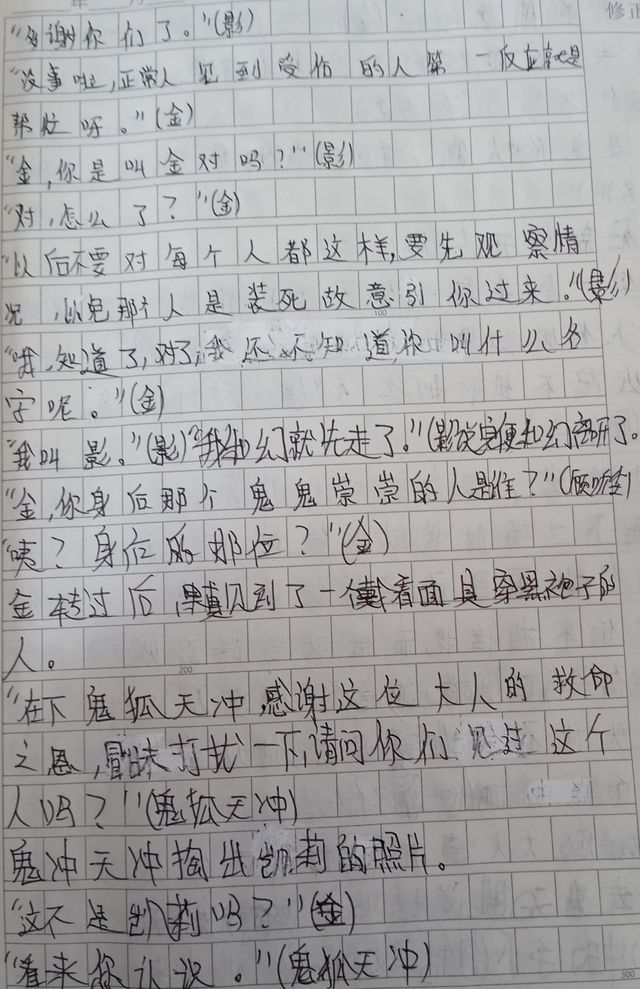 修正
"多谢你们了。"(影)
"没事啦,正常人见到受伤的人第一反应就是
帮忙呀。"(金)
"金,你是叫金对吗?"(影)
"对,怎么了?"(金)
"以后不要对每个人都这样,要先观察情
况,以免那个人是装死故意引你过来。"(影)
100
"哦,知道了,对了,我还不知道你叫什么名
字呢。"(金)
"我叫影。"(影)"我和幻就先走了。"(影说完便和幻离开了。
"金,你身后那个鬼鬼祟祟的人是谁?"(
"咦?身后的那位?"(金)
金转过后,果真见到了一位戴着面具穿黑袍子的
人。
200
"在下鬼狐天冲,感谢这位大人的救命
之恩,冒昧打扰一下,请问你们见过这个
人吗?"(鬼狐天冲)
鬼冲天冲掏出凯莉的照片。
"这不是凯莉吗?"(金)
"看来你认识。"(鬼狐天冲)
300